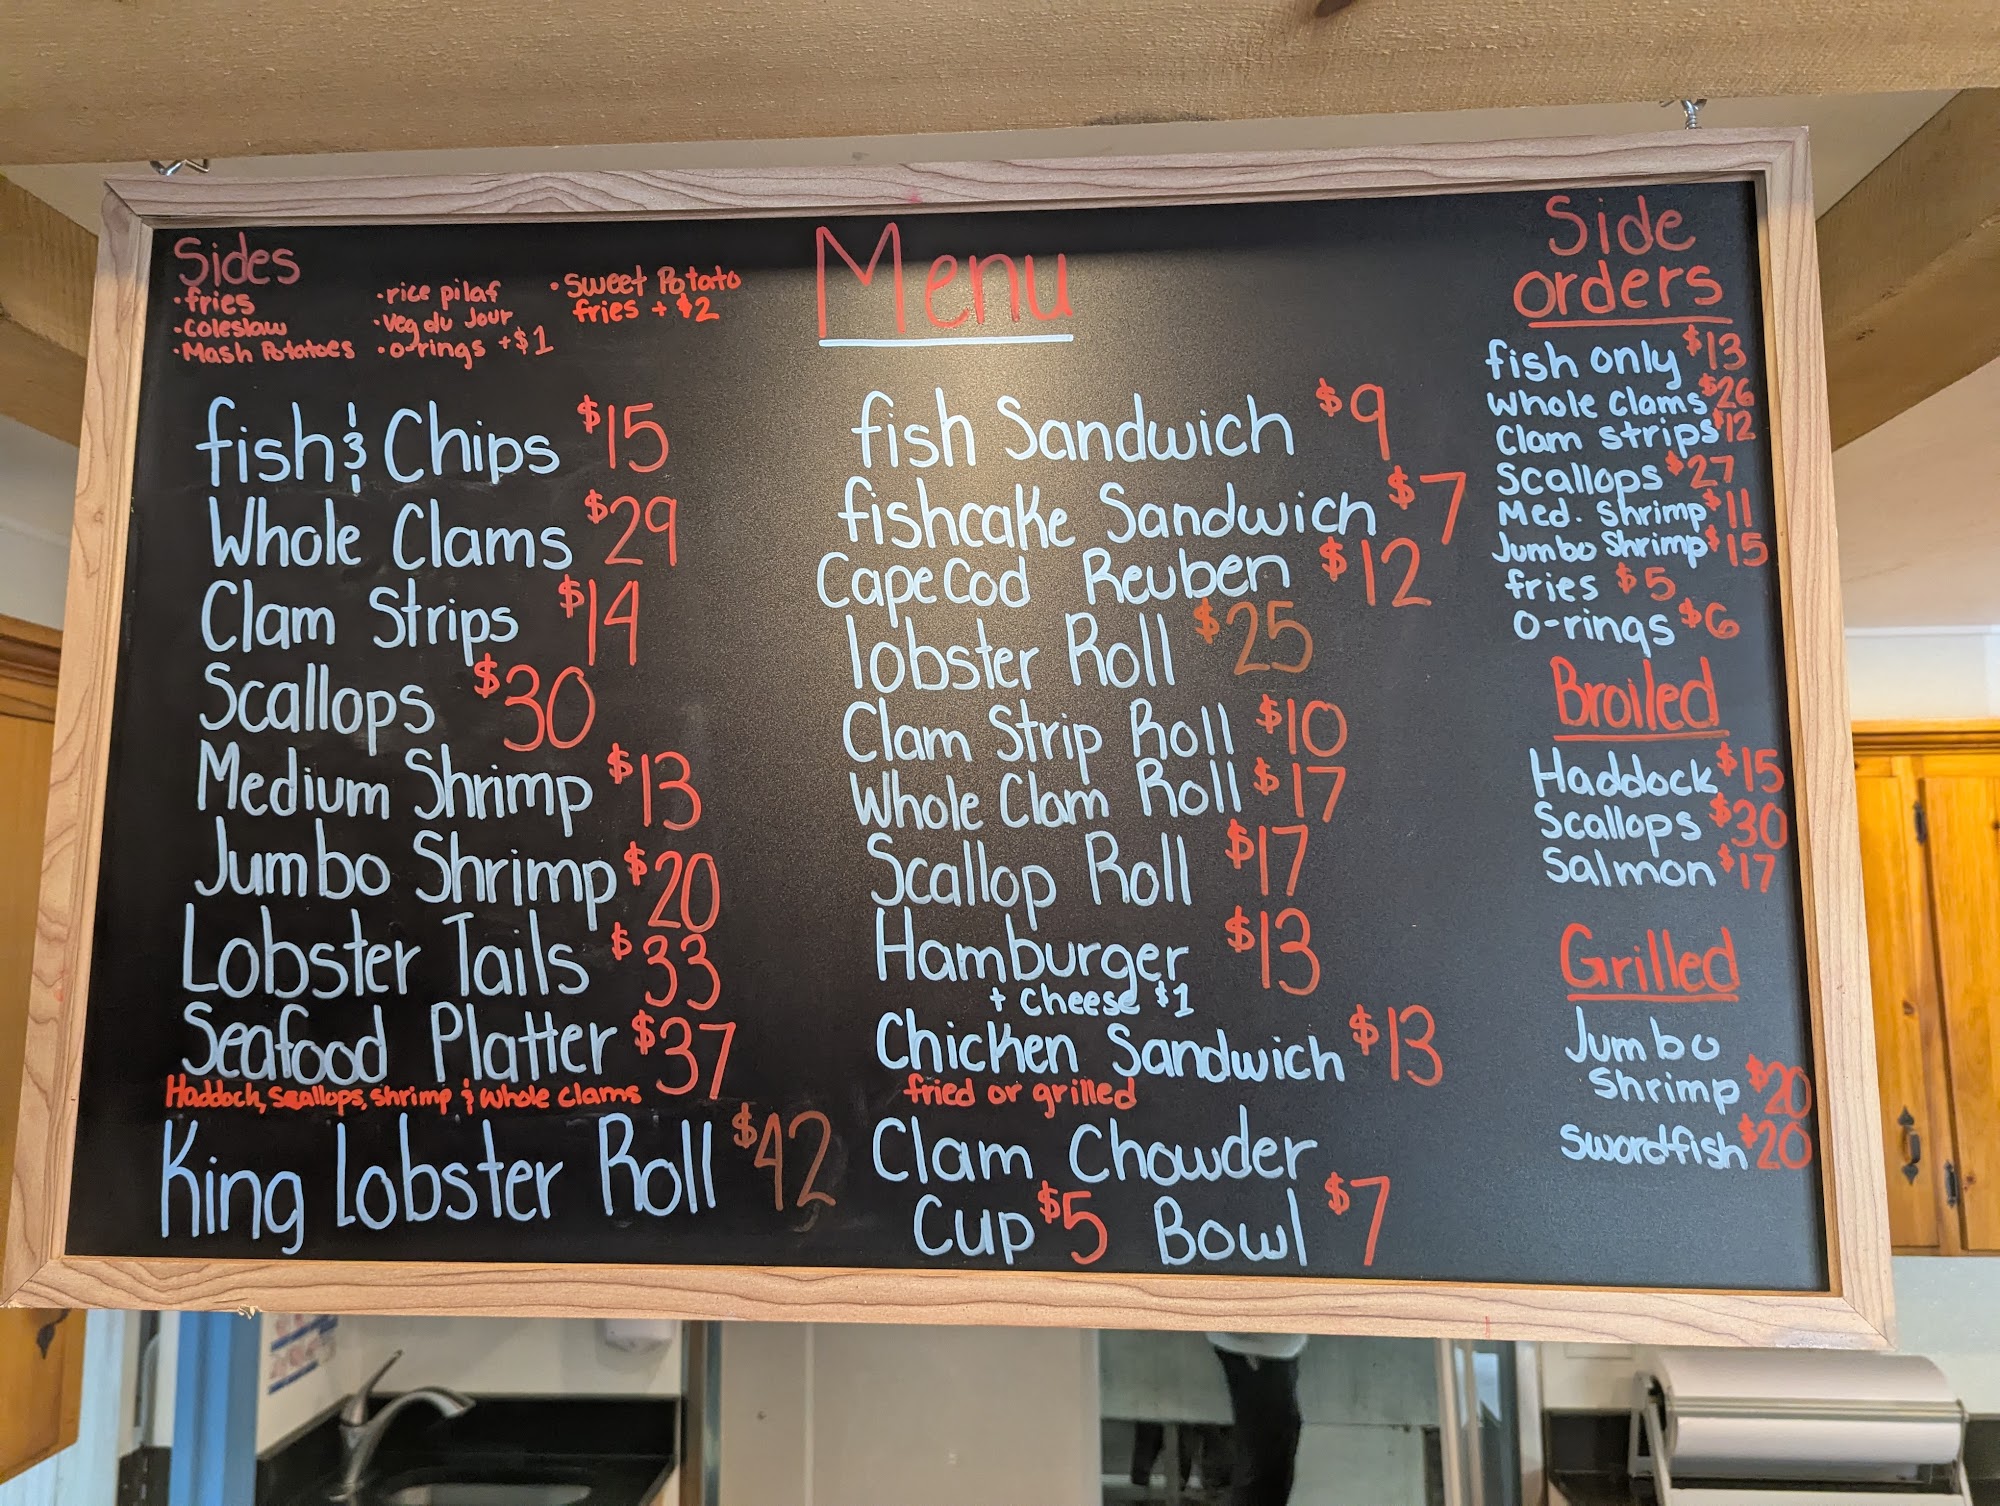 Menu
Sides
•fries
•Coleslaw
•Mash Potatoes
•rice pilaf
•Veg du Jour
•o-rings +$1
•Sweet Potato
fries + $2
fish & Chips $15
Whole Clams $29
Clam Strips $14
Scallops $30
Medium Shrimp $13
Jumbo Shrimp $20
Lobster Tails $33
Seafood Platter $37
Haddock, Scallops, shrimp & whole clams
King Lobster Roll $42
fish Sandwich $9
fishcake Sandwich $7
Cape Cod Reuben $12
lobster Roll $25
Clam Strip Roll $10
Whole Clam Roll $17
Scallop Roll $17
Hamburger $13
+ cheese $1
Chicken Sandwich $13
fried or grilled
Clam Chowder
Cup $5 Bowl $7
Side
orders
fish only $13
Whole Clams $26
Clam strips $12
Scallops $27
Med. Shrimp $11
Jumbo Shrimp $15
fries $5
o-rings $6
Broiled
Haddock $15
Scallops $30
Salmon $17
Grilled
Jumbo
Shrimp $20
Swordfish $20